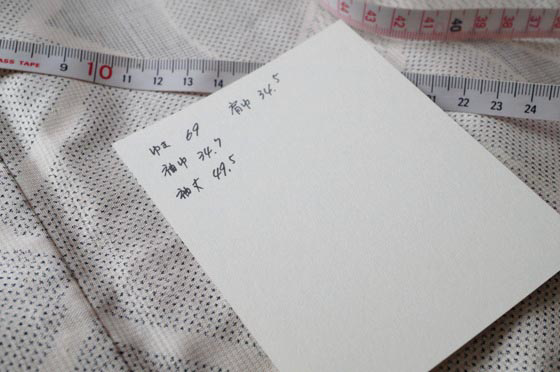 44 43 42 41 40 39 38 37 36
ASS TAPE 9 10 11 12 13 14 15
22 23 24
ゆき 69 肩巾 34.5
袖巾 34.7
袖丈 49.5